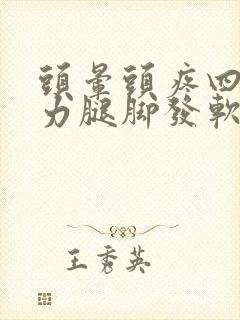 頭暈頭疼四
力腿脚發軟
王秀英